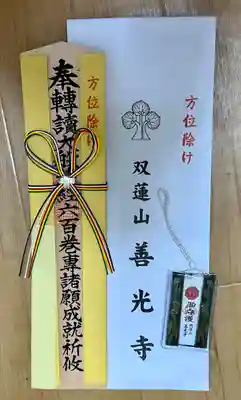 方位除け
奉轉讀大般若経六百巻專諸願成就祈攸
方位除け
双蓮山善光寺
御守護